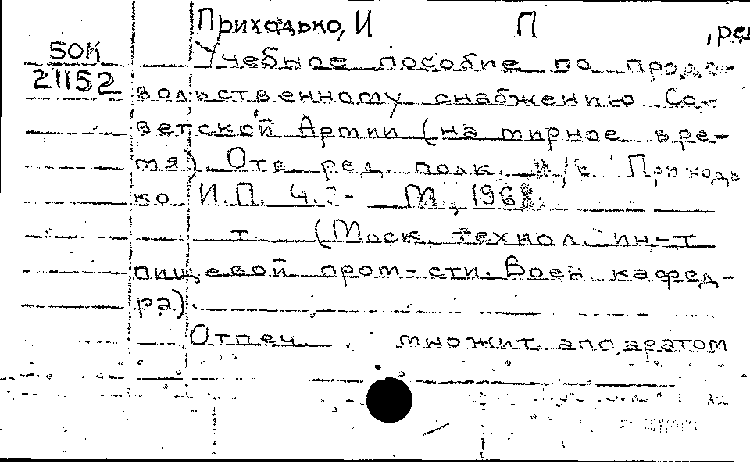 Приходько, И П , ред
50К Учебное пособие по продо-
21152 вольственному снабжению Со-
ветской Армии (на мирное вре-
мя). Отв ред. полк. и/с Приходь
ко И.П. Ч. М., 1968.
т (Моск. технол. ин-т
пищевой пром-сти. Воен кафед-
ра).
Отпеч. множит. аппаратом